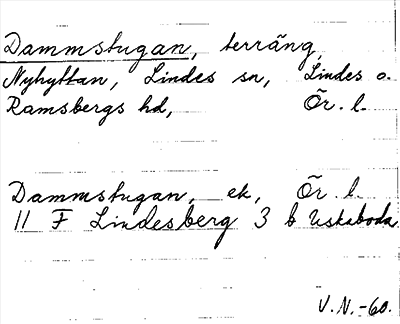 Dammstugan, terräng,
Nyhyttan, Lindes sn, Lindes o.
Ramsbergs hd, Ör. l.
Dammstugan, ek, Ör. l.
11 F Lindesberg 3 b Uskaboda
V.N.-60.